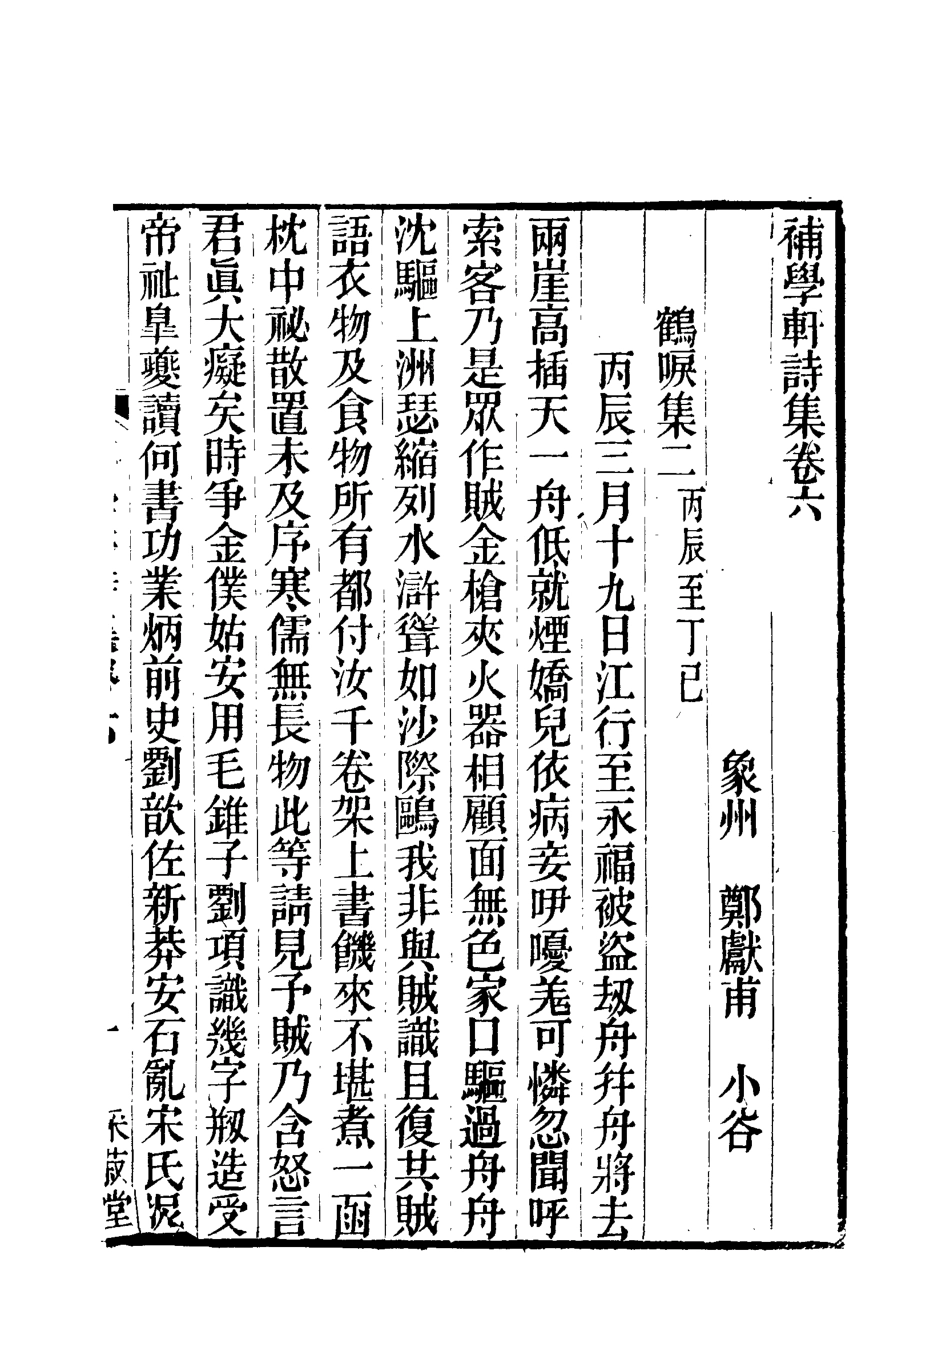 補學軒詩集卷六
象州　鄭獻甫　小谷
鶴唳集二丙辰至丁已
丙辰三月十九日江行至永福被盜刼舟幷舟將去
兩崖高插天一舟低就煙嬌兒依病妾吚嚘羗可憐忽聞呼
索客乃是眾作賊金槍夾火器相顧面無色家口驅過舟舟
沈驅上洲瑟縮列水滸聳如沙際鷗我非與賊識且復共賊
語衣物及食物所有都付汝千卷架上書饑來不堪煮一函
枕中祕散置未及序寒儒無長物此等請見予賊乃含怒言
君眞大癡矣時爭金僕姑安用毛錐子劉項識幾字剏造受
帝祉臯夔讀何書功業炳前史劉歆佐新莽安石亂宋氏泥
一
采菽堂